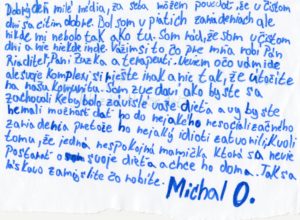 Dobrý deň milé média, za seba môžem povedať, že v čistom
dni sa cítim dobre. Bol som v piatich zariadeniach ale
nikde mi nebolo tak ako tu. Som rád, že som v čistom
dni a nie niekde inde. Vážim si to čo pre mňa robí Pán
Riaditeľ, Pani Zuzka a terapeuti. Neviem očo vám ide
ale svoje komplexi si riešte inak a nie tak, že útočíte
na našu komunitu. Som zvedaví ako byste sa
zachovali keby bolo závislé vaše dieťa a vy by ste
nemali možnosť dať ho do nejakého resocializačného
zariadenia pretože ho nejaký idioti zatvorili, kvôli
tomu, že jedná nespokojná mamička ktorá sa nevie
Postarať o svoje dieťa a chce ho doma. Tak sa
láskavo zamyslite čo robíte.
Michal O.